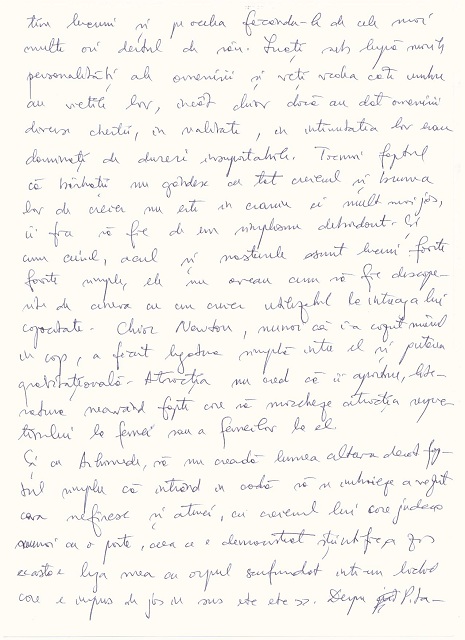 tim lucruri și pe ceilia fecondu-l de cele mai
multe ori destul de rău. Luați sub lupă marile
personalități ale omenirii și veți vedea câte umbre
au viețile lor, încât chiar dacă au dat omenirii
diverse chestii, în realitate, în intimitatea lor erau
dominați de dureri insuportabile. Tocmai faptul
că bărbații nu gândesc cu tot creierul și bucuria
lor de creier nu este în craniu ci mult mai jos,
îi fac să fie de un simplism debordant. Și
cum cuiul, acul și nasturele sunt lucruri foarte
foarte simple, ele nu aveau cum să fie descope-
rite de cineva cu un creier utilizabil la întreaga lui
capacitate. Chiar Newton, numai că i-a căzut mărul
în cap, a făcut legătura simplă între el și puterea
gravitațională. Atracția nu cred că îi aparține, lite-
ratura neavând fapte care să marcheze atracția repre-
ului la femei sau a femeilor la el.
Și cu Arhimede, să nu creadă lumea altceva decât fap-
tul simplu că intrând în cadă să se îmbăieze a văzut
ceva nefiresc și atunci, cu creierul lui care judeca
numai cu o parte, ceea ce e demonstrat științific, a zis
aceasta e legea mea cu corpul scufundat într-un lichid
care e împins de jos în sus etc etc. Despre Pita-